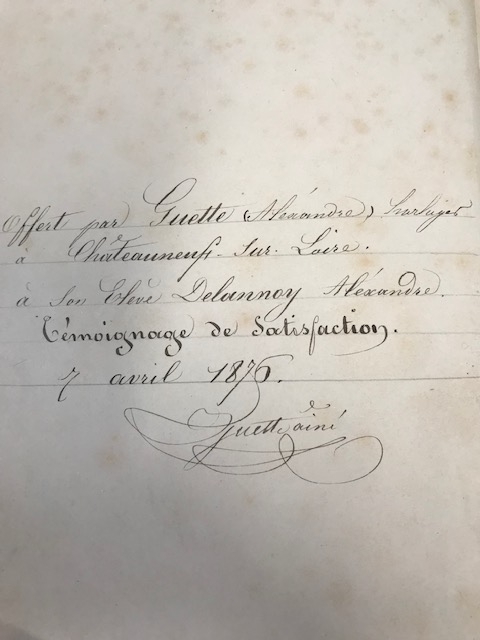 Offert par Guette (Alexandre) horloger
à Châteauneuf-sur-Loire.
à son Elève Delannoy Alexandre.
Témoignage de Satisfaction.
7 avril 1876.
Guette ainé